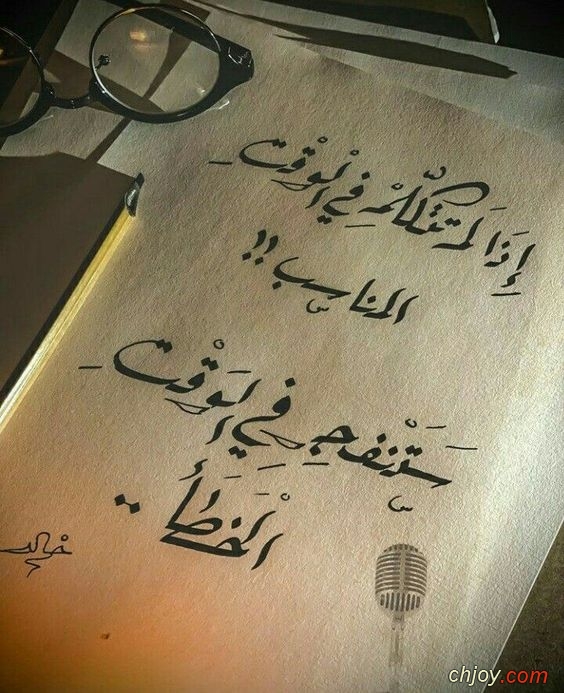 إِذَا لم تتكلَّمْ فِي الْوقْتِ
المناسِب !!
سَتَنفجِر فِي الوَقْتِ
الْخَطَأ ..
خالد
chjoy.com